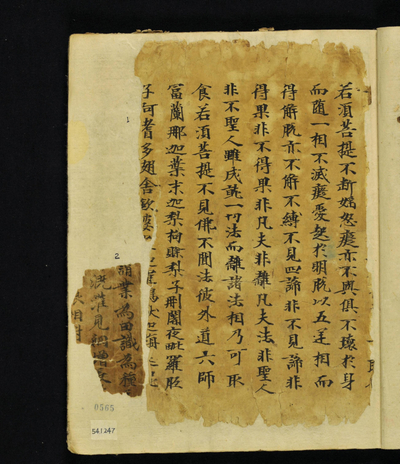 若須菩提不斷婬怒癡亦不與俱不壞於身
而隨一相不滅癡愛起於明脫以五逆相而
得解脫亦不解不縛不見四諦非不見諦非
得果非不得果非凡夫非離凡夫法非聖人
非不聖人雖成就一切法而離諸法相乃可取
食若須菩提不見佛不聞法彼外道六師
富蘭那迦葉末迦梨拘賒梨子刪闍夜毗羅胝
子阿耆多翅舍欽婆
1
2
業為田識為種
0565
541247